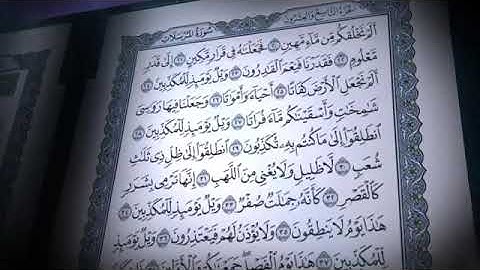 سُورَةُ المُرْسَلَات الجُزءُ التَّاسِعُ وَالعِشْرُونَ
أَلَمْ نَخْلُقكُّم مِّن مَّآءٍ مَّهِينٍ ٢٠ فَجَعَلْنَٰهُ فِى قَرَارٍ مَّكِينٍ ٢١ إِلَىٰ قَدَرٍ
مَّعْلُومٍ ٢٢ فَقَدَرْنَا فَنِعْمَ ٱلْقَٰدِرُونَ ٢٣ وَيْلٌ يَوْمَئِذٍ لِّلْمُكَذِّبِينَ ٢٤
أَلَمْ نَجْعَلِ ٱلْأَرْضَ كِفَاتًا ٢٥ أَحْيَآءً وَأَمْوَٰتًا ٢٦ وَجَعَلْنَا فِيهَا رَوَٰسِىَ
شَٰمِخَٰتٍ وَأَسْقَيْنَٰكُم مَّآءً فُرَاتًا ٢٧ وَيْلٌ يَوْمَئِذٍ لِّلْمُكَذِّبِينَ ٢٨
ٱنطَلِقُوٓا۟ إِلَىٰ مَا كُنتُم بِهِۦ تُكَذِّبُونَ ٢٩ ٱنطَلِقُوٓا۟ إِلَىٰ ظِلٍّ ذِى ثَلَٰثِ
شُعَبٍ ٣٠ لَّا ظَلِيلٍ وَلَا يُغْنِى مِنَ ٱللَّهَبِ ٣١ إِنَّهَا تَرْمِى بِشَرَرٍ
كَٱلْقَصْرِ ٣٢ كَأَنَّهُۥ جِمَٰلَتٌ صُفْرٌ ٣٣ وَيْلٌ يَوْمَئِذٍ لِّلْمُكَذِّبِينَ ٣٤
هَٰذَا يَوْمُ لَا يَنطِقُونَ ٣٥ وَلَا يُؤْذَنُ لَهُمْ فَيَعْتَذِرُونَ ٣٦ وَيْلٌ يَوْمَئِذٍ
لِّلْمُكَذِّبِينَ ٣٧ هَٰذَا يَوْمُ ٱلْفَصْلِ جَمَعْنَٰكُمْ وَٱلْأَوَّلِينَ